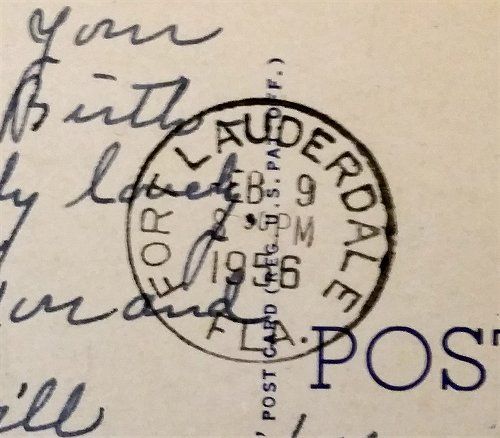 your
Birth
ly lovely
FORT LAUDERDALE
FEB 9
8 PM
1956
FLA.
POST CARD (REG. U.S. PAT. OFF.)
and
POST
ill